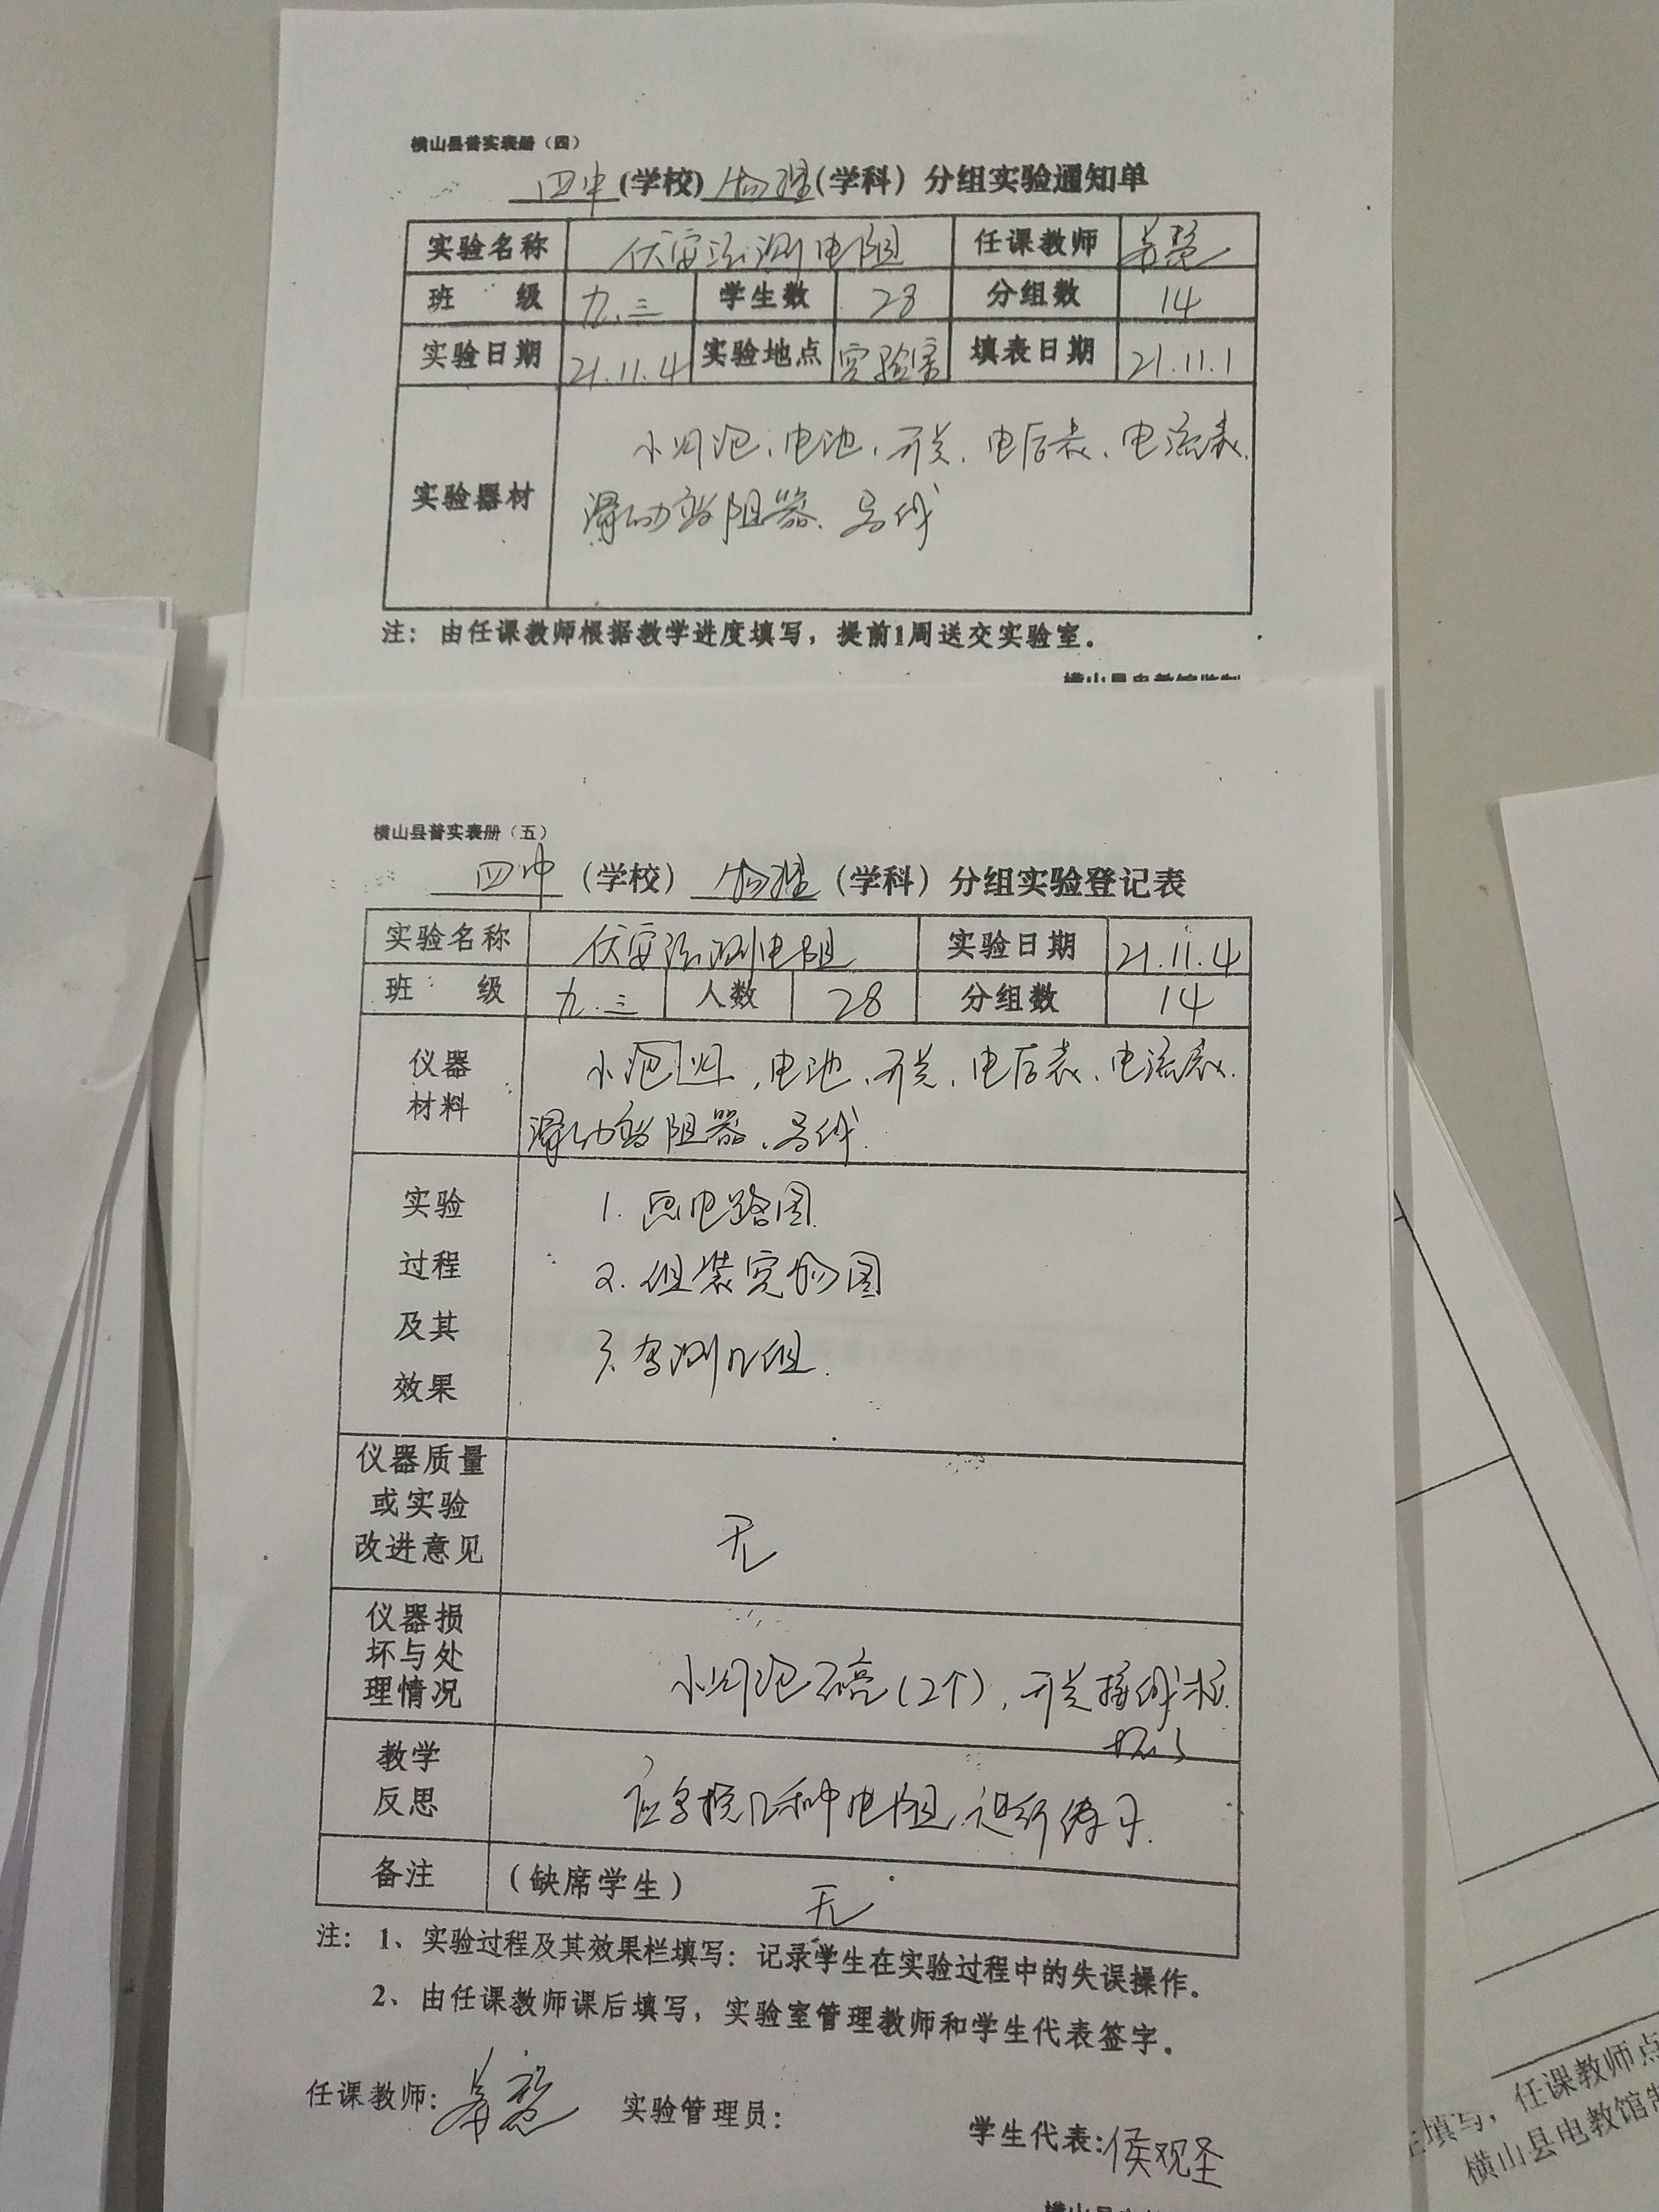 横山县普实表册（四）
四中(学校)物理(学科）分组实验通知单
实验名称 伏安法测电阻 任课教师
班 级 九.三 学生数 28 分组数 14
实验日期 21.11.4 实验地点 实验室 填表日期 21.11.1
实验器材 小灯泡、电池、开关、电压表、电流表、
滑动变阻器、导线
注：由任课教师根据教学进度填写，提前1周送交实验室．
横山县电教馆监制
横山县普实表册（五）
四中（学校）物理（学科）分组实验登记表
实验名称 伏安法测电阻 实验日期 21.11.4
班 级 九.三 人数 28 分组数 14
仪器
材料
小灯泡、电池、开关、电压表、电流表、
滑动变阻器、导线.
实验
过程
及其
效果
1. 画电路图
2. 组装实物图
3. 多测几组.
仪器质量
或实验
改进意见
无
仪器损
坏与处
理情况
小灯泡不亮(2个)，开关接线柱
坏了
教学
反思
应多换几种电阻进行练习.
备注 （缺席学生）
无
注：1、实验过程及其效果栏填写：记录学生在实验过程中的失误操作。
2、由任课教师课后填写，实验室管理教师和学生代表签字。
任课教师: 实验管理员: 学生代表:侯观圣
填写，任课教师点
横山县电教馆制